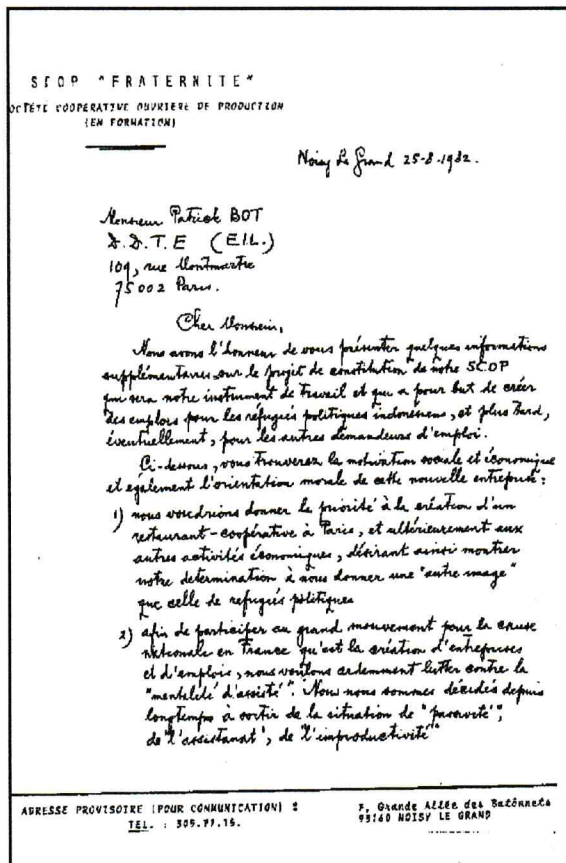 SCOP "FRATERNITE"
OCIÉTÉ COOPÉRATIVE OUVRIERE DE PRODUCTION
(EN FORMATION)
Noisy Le Grand 25-8-1982.
Monsieur Patrick BOT
D.D.T.E (E.I.L.)
109, rue Montmartre
75002 Paris.
Cher Monsieur,
Nous avons l'honneur de vous présenter quelques informations
supplémentaires sur le projet de constitution de notre SCOP
qui sera notre instrument de travail et qui a pour but de créer
des emplois pour les réfugiés politiques indonésiens, et plus tard,
éventuellement, pour les autres demandeurs d'emploi.
Ci-dessous, vous trouverez la motivation sociale et économique
et egalement l'orientation morale de cette nouvelle entreprise :
1) nous voudrions donner la priorité à la création d'un
restaurant-coopérative à Paris, et ultérieurement aux
autres activités économiques, désirant ainsi montrer
notre determination à nous donner une "autre image"
que celle de refugiés politiques
2) afin de participer au grand mouvement pour la cause
nationale en France qu'est la création d'entreprises
et d'emplois, nous voulons ardemment lutter contre la
"mentalité d'assisté". Nous nous sommes décidés depuis
longtemps à sortir de la situation de "passivité",
de "l'assistanat", de "l'improductivité"
ADRESSE PROVISOIRE (POUR COMMUNICATION) :
TEL. : 305.77.15.
Grande Allée des Batônnets
93160 NOISY LE GRAND